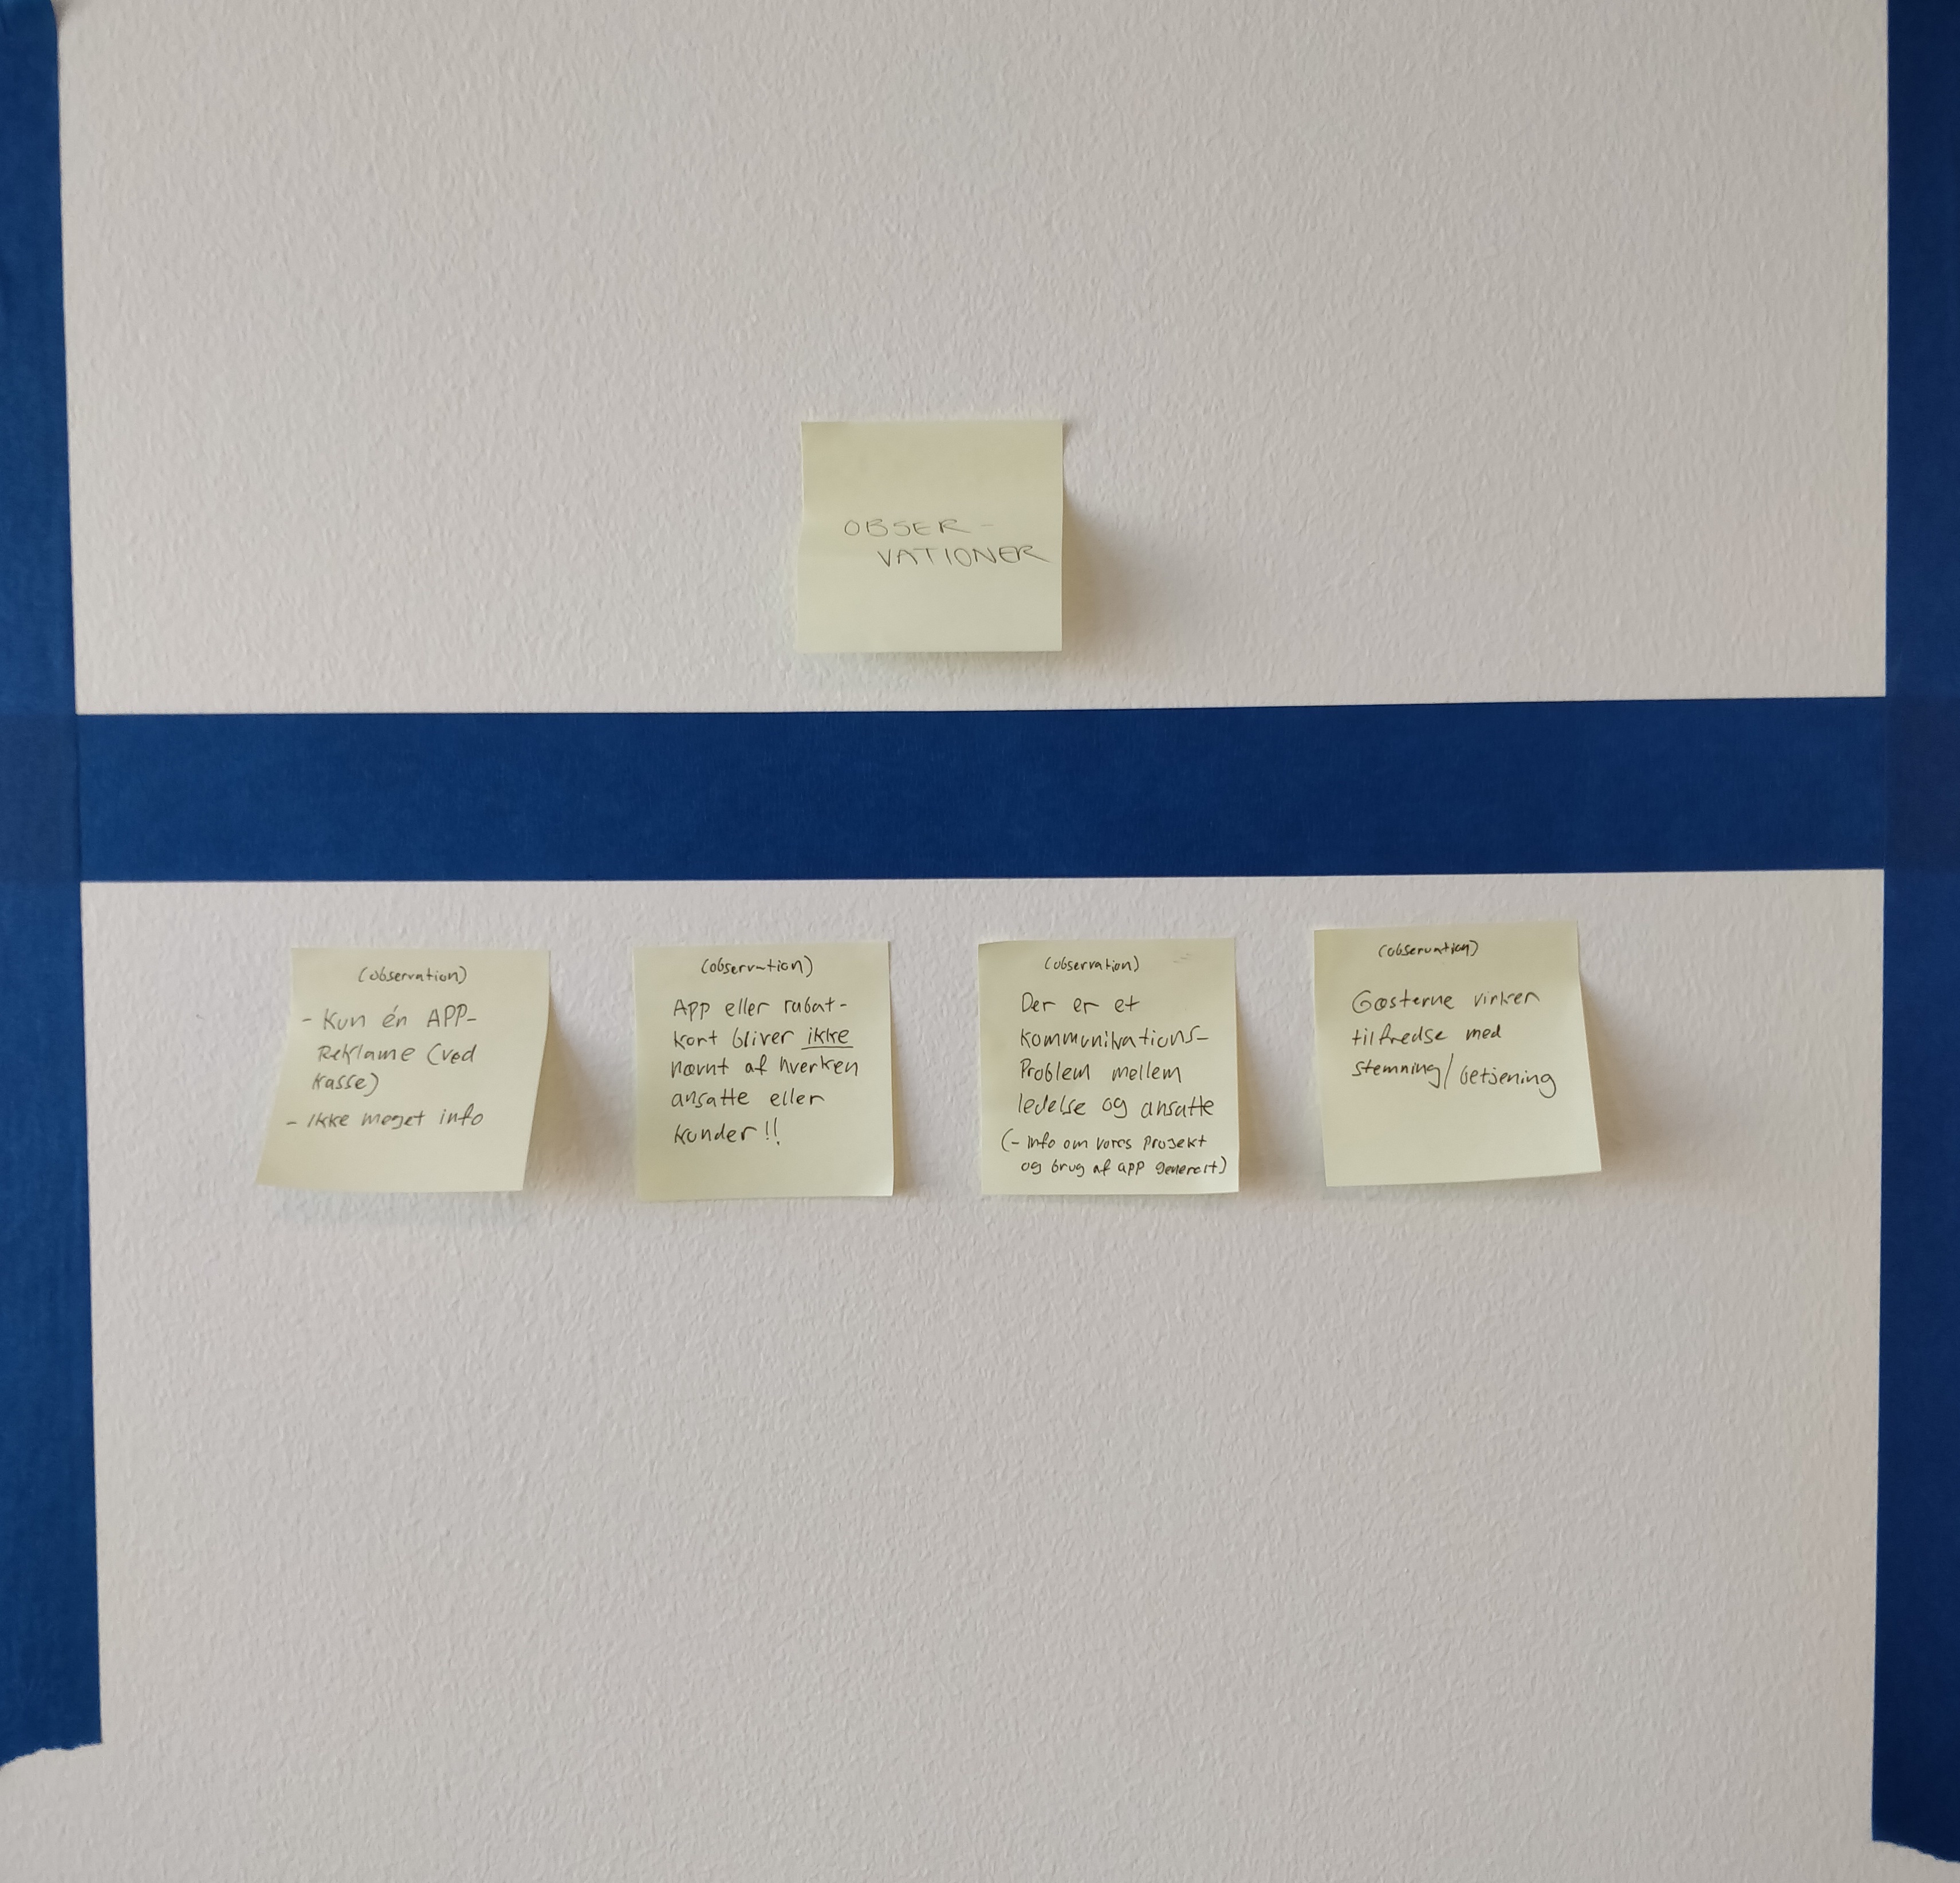 OBSER-
VATIONER
(observation)
- Kun én APP-
Reklame (ved
kasse)
- Ikke meget info
(observation)
APP eller rabat-
kort bliver ikke
nævnt af hverken
ansatte eller
kunder!!
(observation)
Der er et
kommunikations-
Problem mellem
ledelse og ansatte
(- info om vores projekt
og brug af app generelt)
(observation)
Gæsterne virker
tilfredse med
stemning/betjening